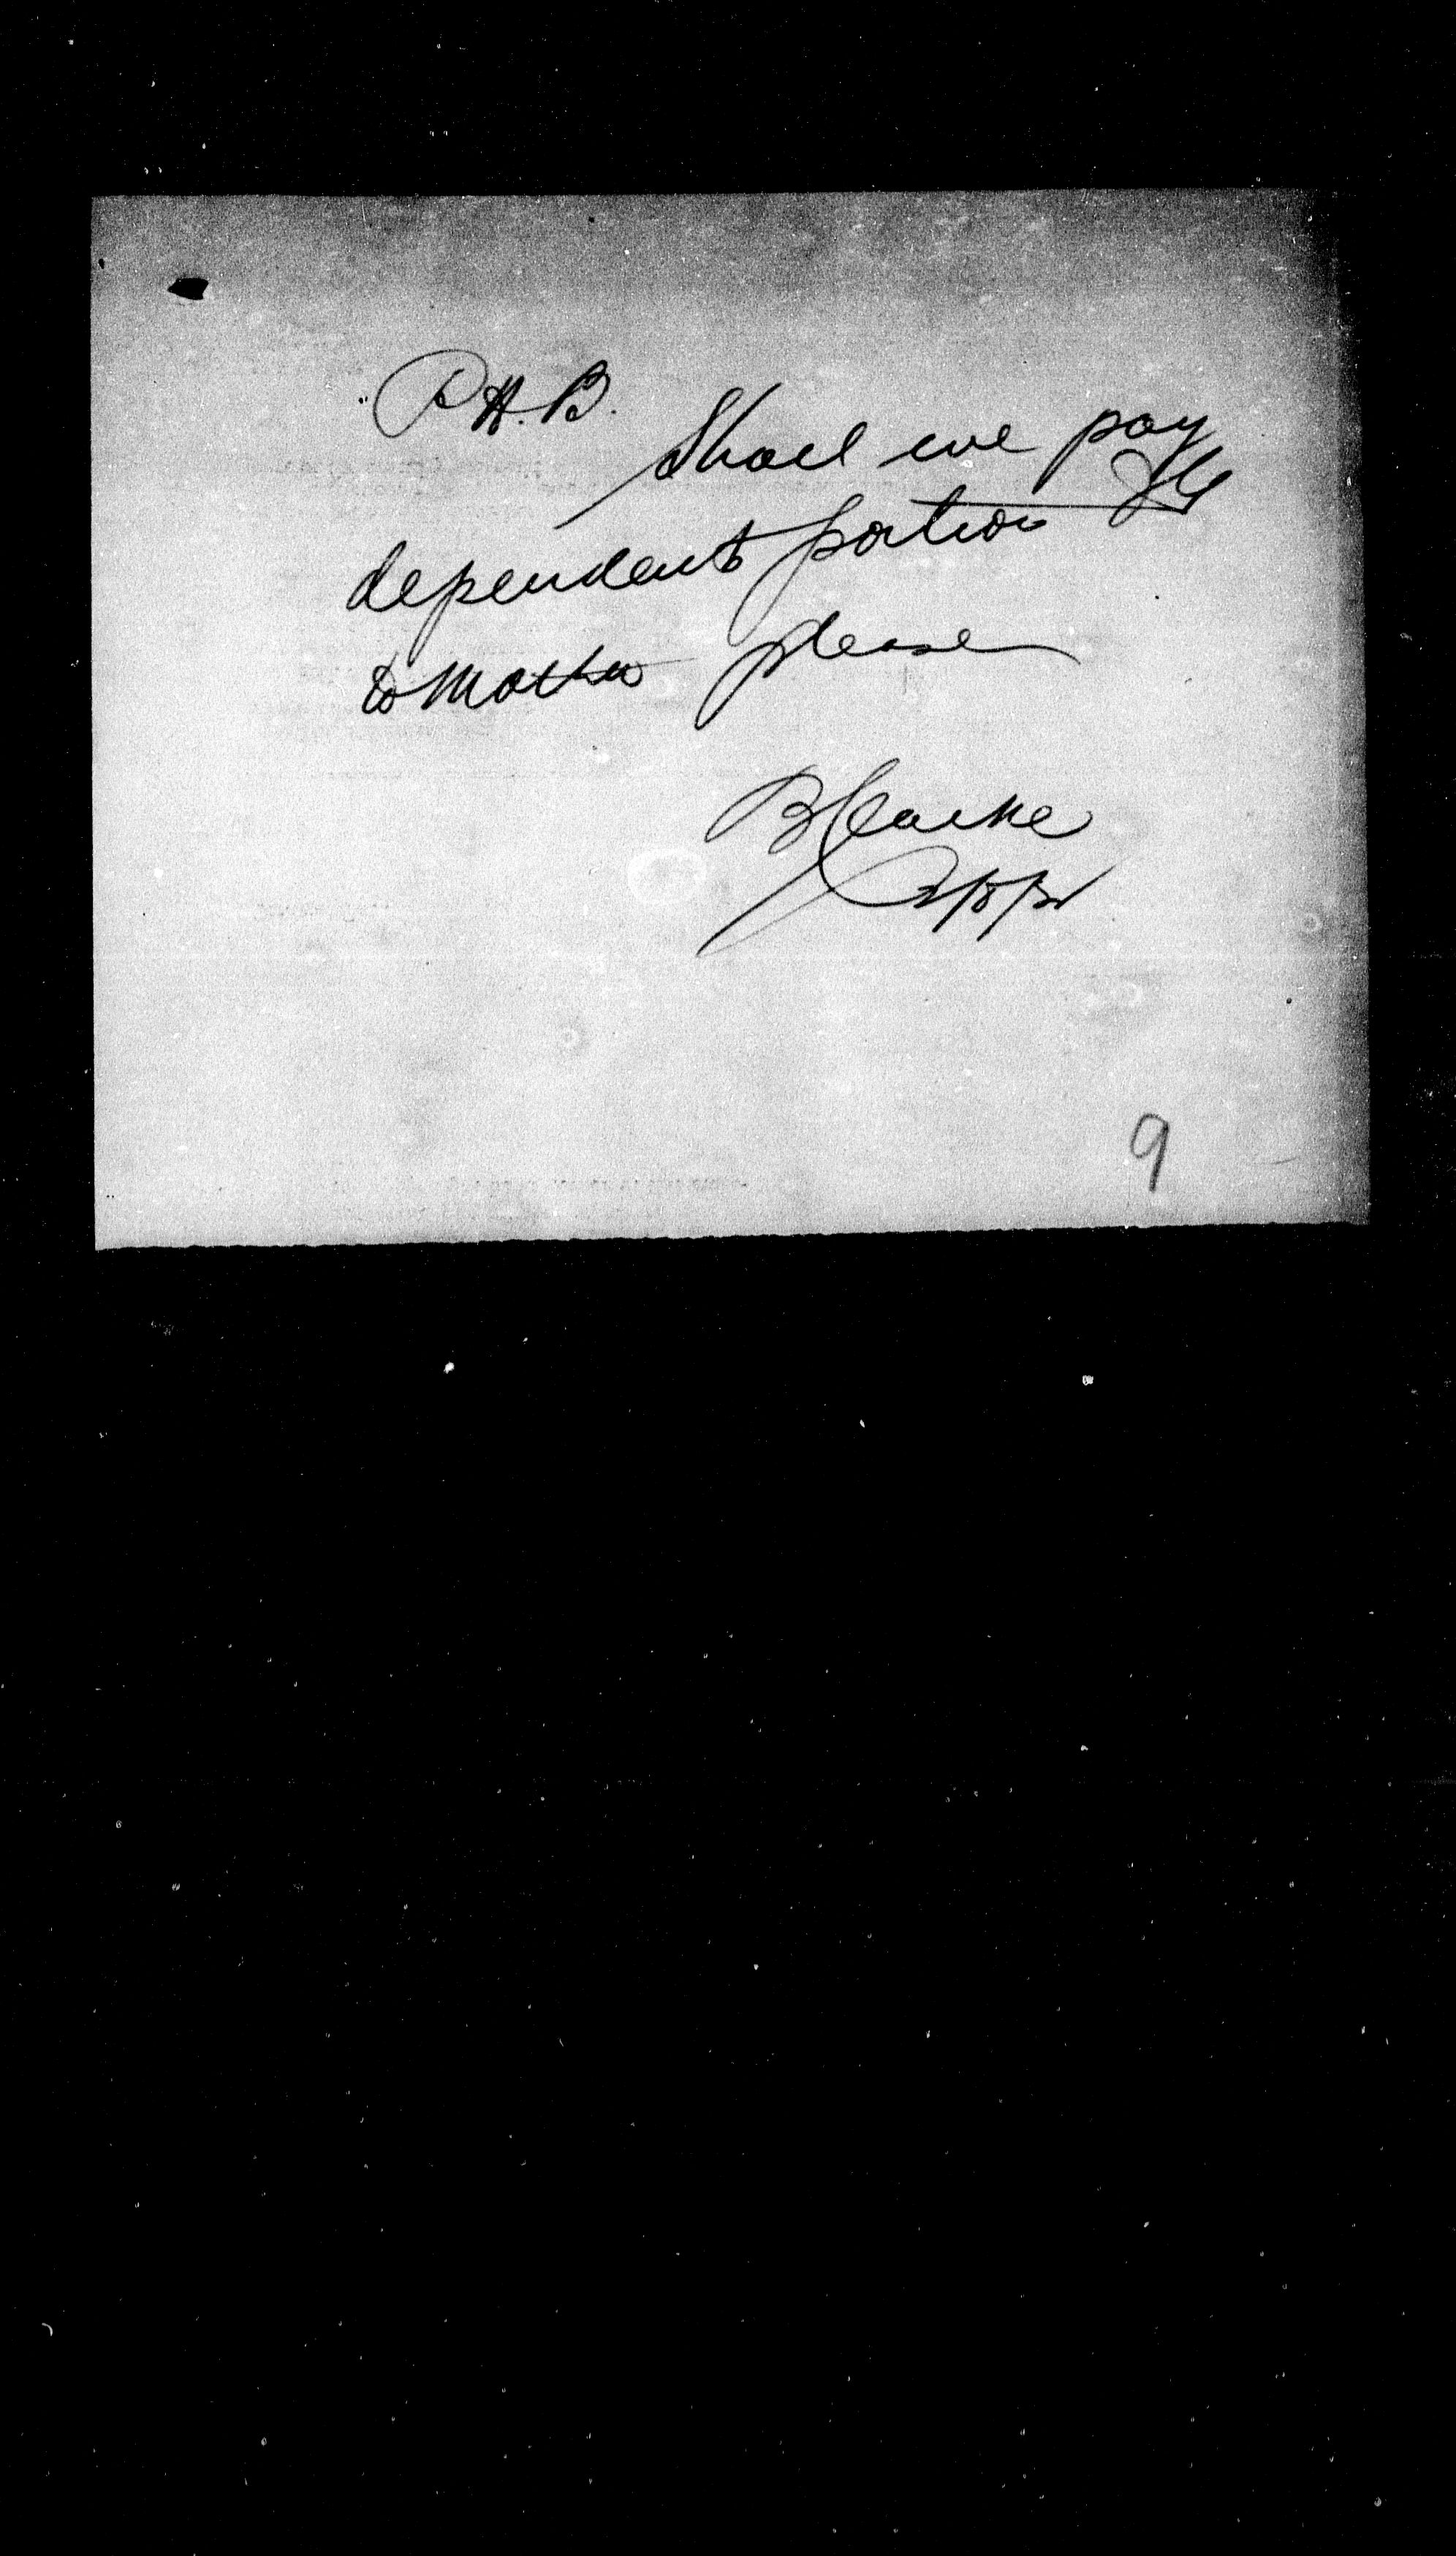 P.H.B.
Shall we pay
dependents portion
to Mother please
B Clarke
9